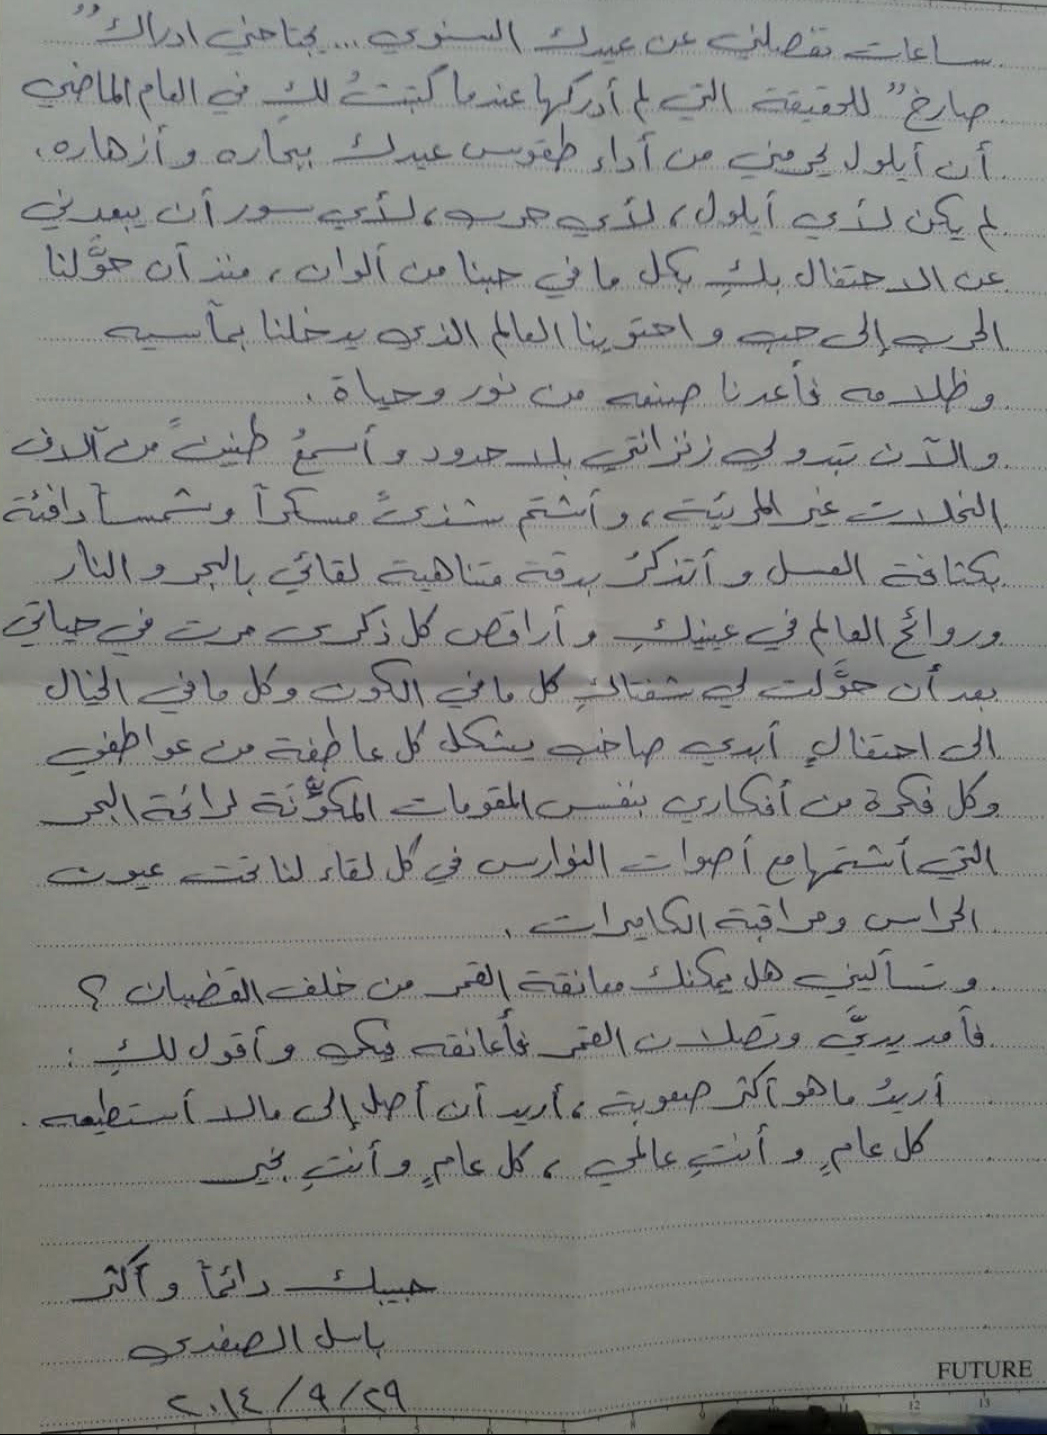 ساعات تفصلني عن عيدك السنوي... يجتاحني ادراك "
صارخ" للحقيقة التي لم أدركها عندما كتبتُ لكِ في العام الماضي
أن أيلول يحرمني من أداء طقوس عيدك ببحاره وأزهاره.
لم يكن لأي أيلول، لأي حرب، لأي سور أن يبعدني
عن الاحتفال بكِ بكل ما في حبنا من ألوان، منذ أن حوَّلنا
الحرب إلى حب واحتوينا العالم الذي يدخلنا بمآسيه
وظلامه فأعدنا صنعه من نور وحياة.
والآن تبدو لي زنزانتي بلا حدود وأسمعُ طنينً من آلاف
النحلات غير المرئية، وأشتم شذىً مسكراً وشمساً دافئة
بكثافة العسل وأتذكرُ بدقة متناهية لقائي بالبحر والنار
وروائح العالم في عينيكِ وأراقص كل ذكرى مرت في حياتي
بعد أن حوَّلت لي شفتاكِ كل ما في الكون وكل ما في الخيال
الى احتفالٍ أبدي صاخب يشكل كل عاطفة من عواطفي
وكل فكرة من أفكاري بنفس المقومات المكوِّنة لرائحة البحر
التي أشتمها مع أصوات النوارس في كل لقاء لنا تحت عيون
الحراس ومراقبة الكاميرات.
وتسأليني هل يمكنك معانقة القمر من خلف القضبان؟
فأمد يديَّ وتصلان القمر فأعانقه فيكي وأقول لكِ:
أريدُ ما هو أكثر صعوبة، أريد أن أصل إلى مالا أستطيعه.
كل عامٍ وأنتِ عالمي، كل عامٍ وأنتِ بخير
حبيبك دائماً وأكثر
باسل الصفدي
٢٠١٤/٩/٢٩
FUTURE